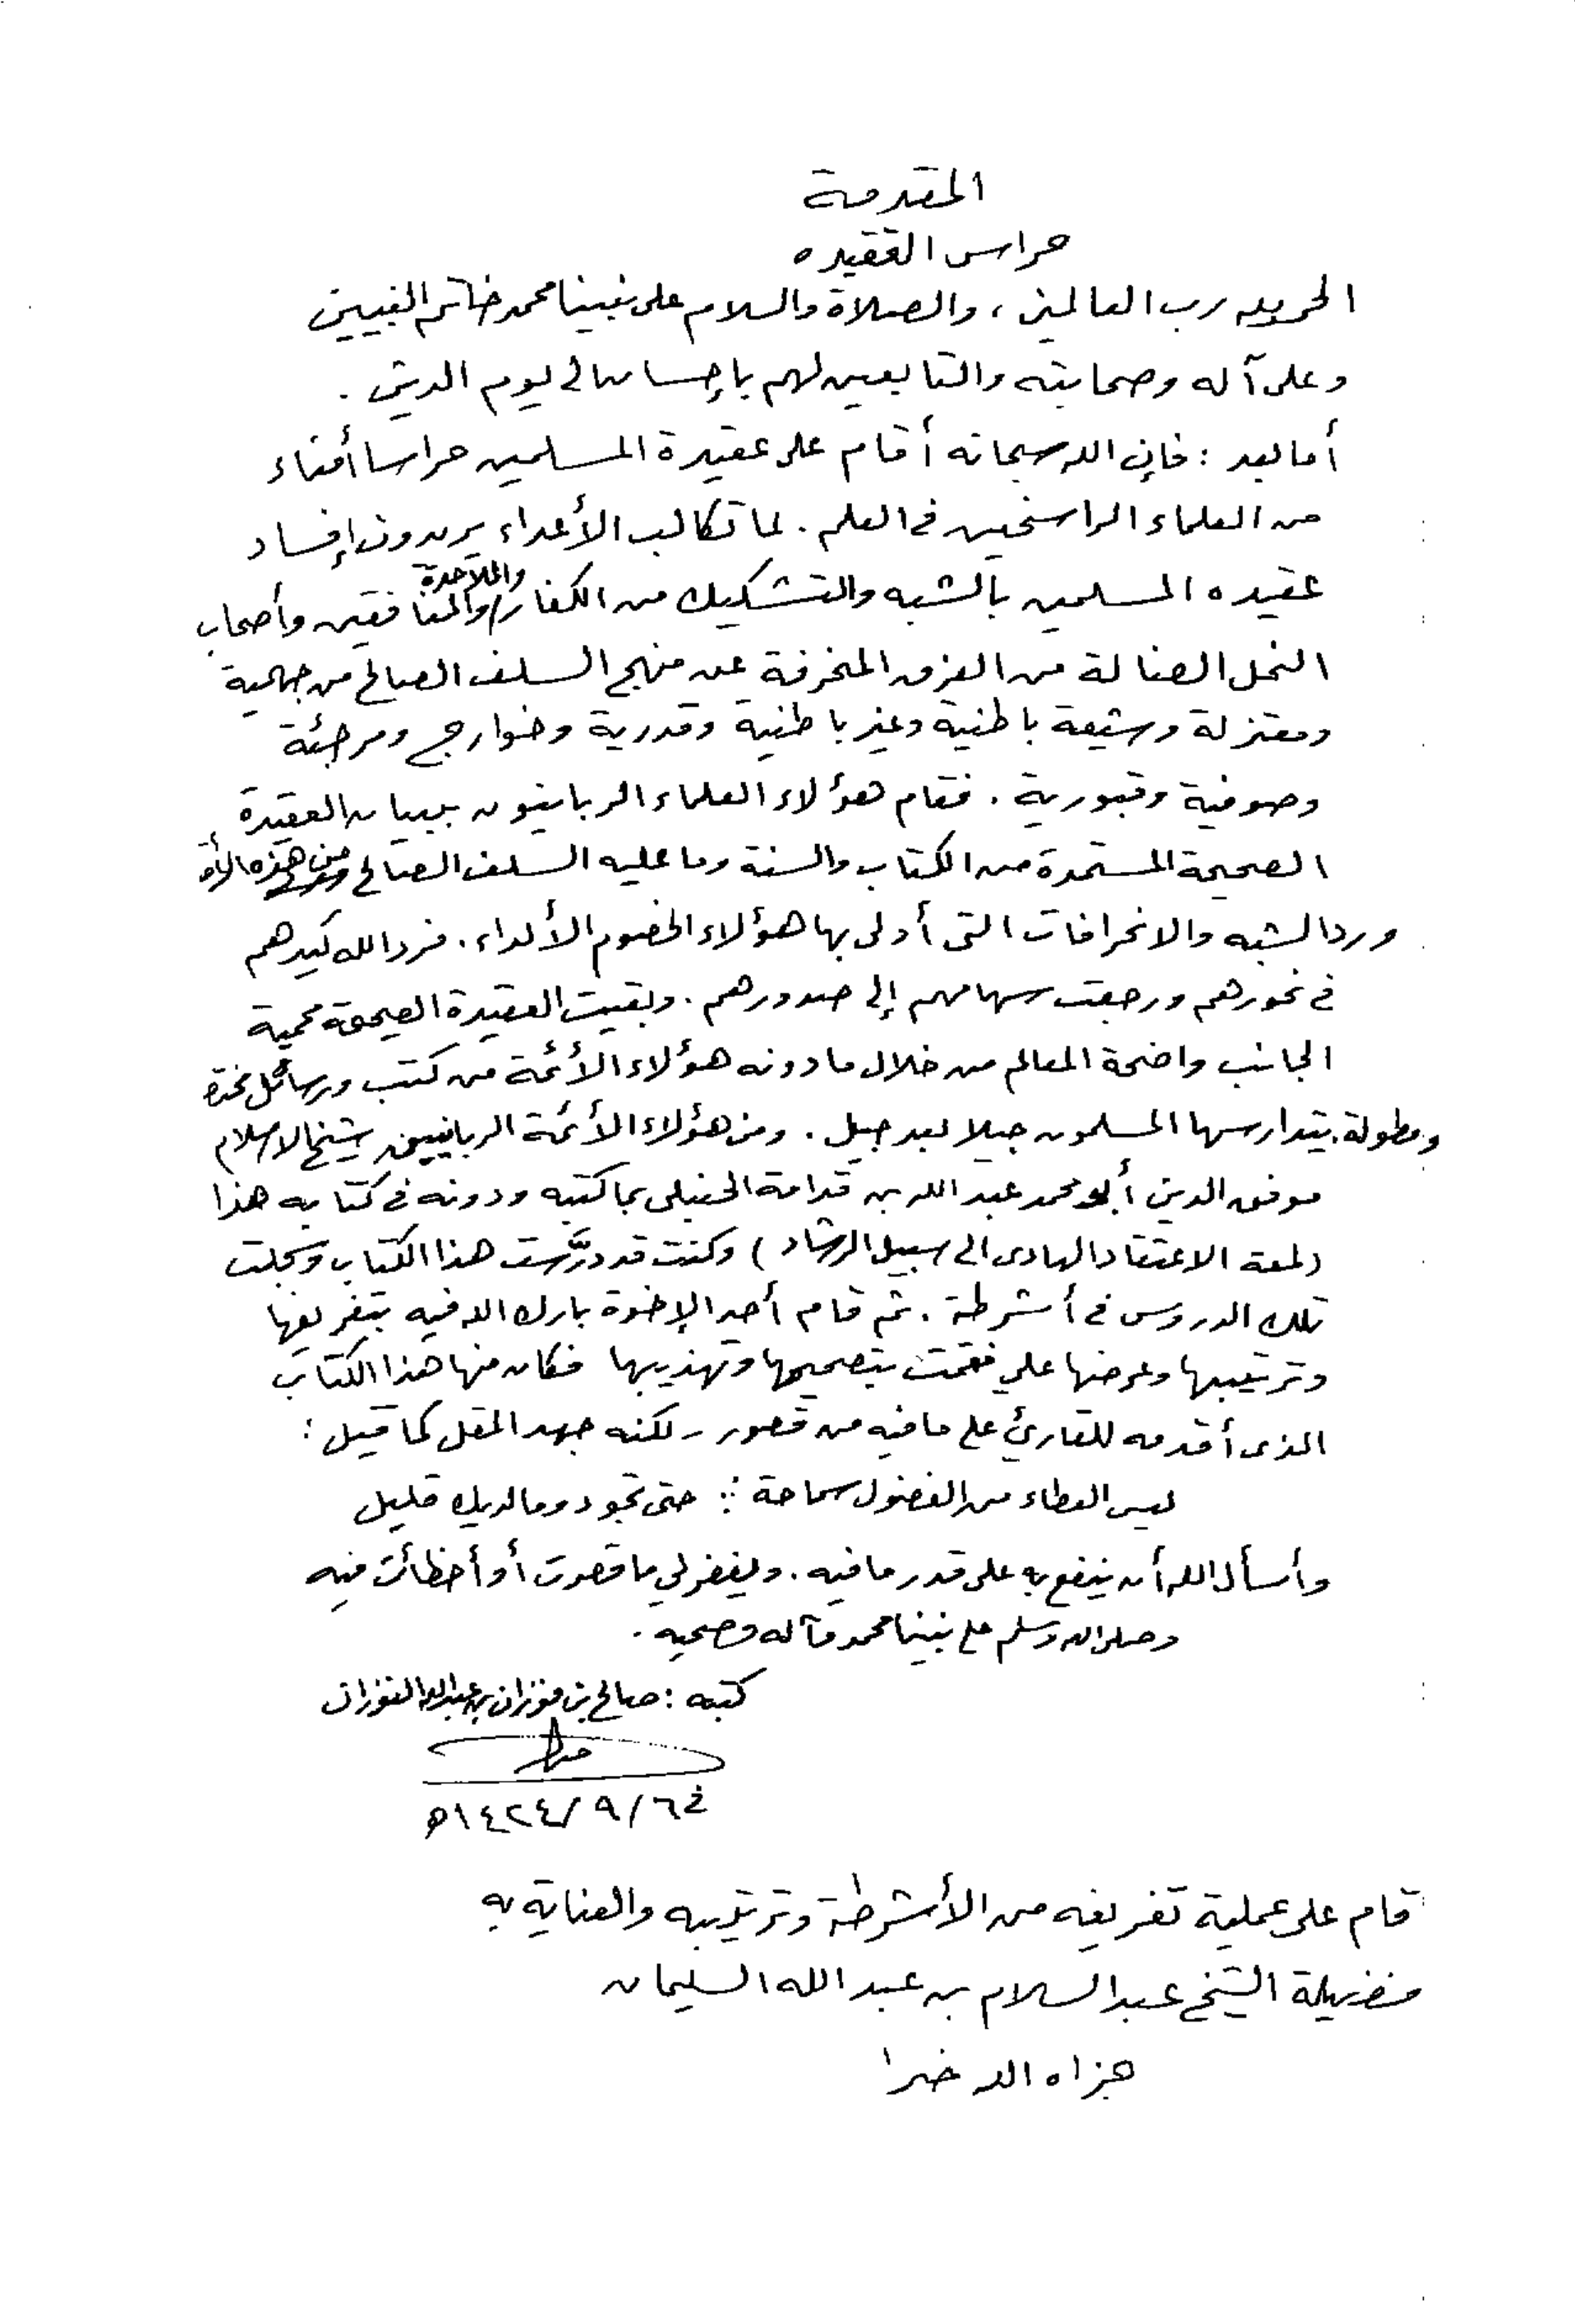 المقدمة
حراس العقيده
الحمد لله رب العالمين، والصلاة والسلام على نبينا محمد خاتم النبيين
وعلى آله وصحابته والتابعين لهم بإحسان إلى يوم الدين.
أما بعد: فإن الله سبحانه أقام على عقيدة المسلمين حراسا أمناء
من العلماء الراسخين في العلم. لما تكالب الأعداء يريدون إفساد
عقيده المسلمين بالشبه والتشكيك من الكفار والملاحدة والمنافقين وأصحاب
النحل الضالة من الفرق المنحرفة عن منهج السلف الصالح من جهمية
ومعتزلة وشيعة باطنية وغير باطنية وقدرية وخوارج ومرجئة
وصوفية وقبورية. فقام هؤلاء العلماء الربانيون ببيان العقيدة
الصحيحة المستمدة من الكتاب والسنة وما عليه السلف الصالح من هذه الأمة
ورد الشبه والانحرافات التي أدلى بها هؤلاء الخصوم الألداء. فرد الله كيدهم
في نحورهم ورجعت سهامهم إلى صدورهم. وبقيت العقيدة الصحيحة محمية
الجانب واضحة المعالم من خلال ما دونه هؤلاء الأئمة من كتب ورسائل مختصرة
ومطولة. يتدارسها المسلمون جيلا بعد جيل. ومن هؤلاء الأئمة الربانيين شيخ الاسلام
موفق الدين أبو محمد عبد الله بن قدامة الحنبلي بما كتبه ودونه في كتابه هذا
(لمعة الاعتقاد الهادى الى سبيل الرشاد) وكنت قد درَّست هذا الكتاب وسجلت
تلك الدروس في أشرطة. ثم قام أحد الإخوة بارك الله فيه بتفريغها
وترتيبها وعرضها علي فقمت بتصحيحها وتهذيبها فكان منها هذا الكتاب
الذى أقدمه للقارئ على ما فيه من قصور - لكنه جهد المقل كما قيل:
ليس العطاء من الفضول سماحة ∴ حتى تجود وما لديك قليل
وأسأل الله أن ينفع به على قدر ما فيه. ويغفر لي ما قصرت أو أخطأت فيه
وصلى الله وسلم على نبينا محمد وآله وصحبه.
كتبه: صالح بن فوزان بن عبد الله الفوزان
في ٦/٩/١٤٢٤هـ
قام على عملية تفريغه من الأشرطة وترتيبه والعناية به
فضيلة الشيخ عبد السلام بن عبد الله السليمان
جزاه الله خيرا